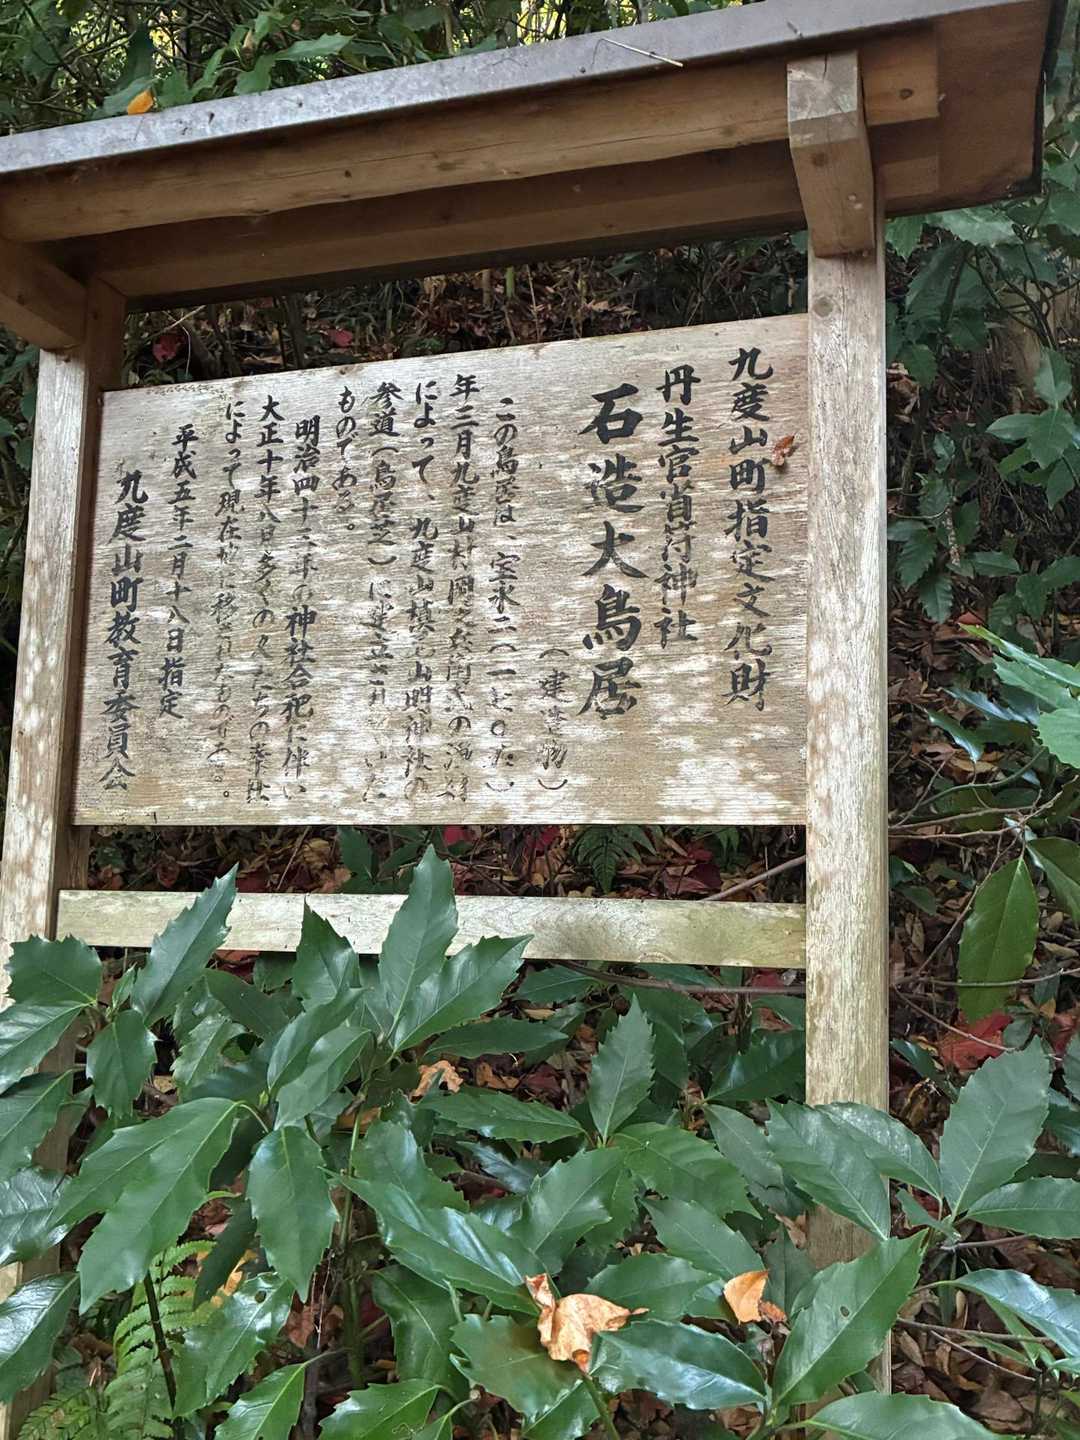 九度山町指定文化財
丹生官省符神社
石造大鳥居
(建造物)
この鳥居は、宝永二(一七〇五)
年三月九度山村岡
によって、九度山槙山明神社の
参道(鳥居芝)に建立されていた
ものである。
明治四十三年の神社合祀に伴い
大正十年八日多くの人たちの奉仕
によって現在地に移されたものである。
平成五年二月十八日指定
九度山町教育委員会